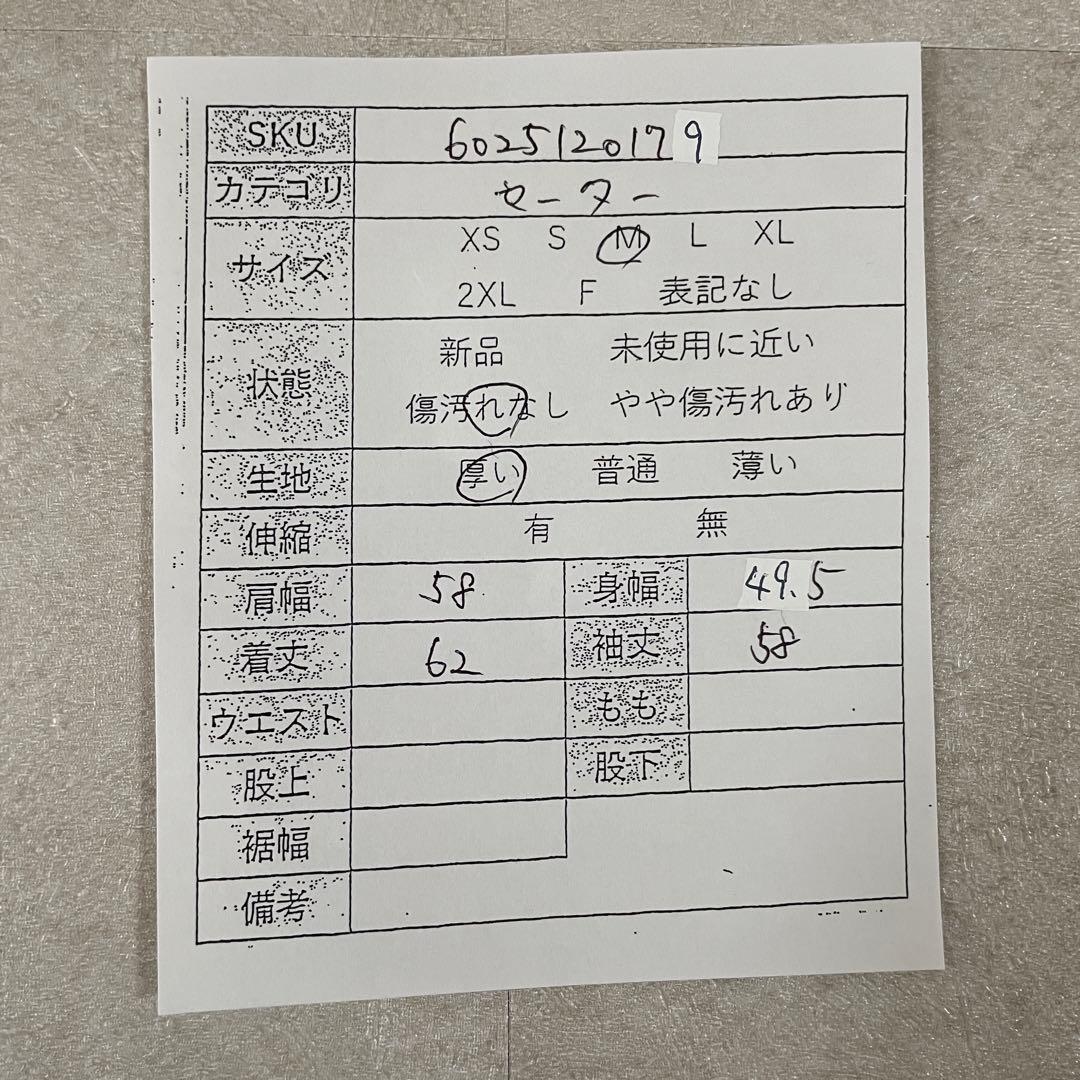 SKU 6025120179
カテゴリ セーター
サイズ XS S M L XL
2XL F 表記なし
状態 新品 未使用に近い
傷汚れなし やや傷汚れあり
生地 厚い 普通 薄い
伸縮 有 無
肩幅 58 身幅 49.5
着丈 62 袖丈 58
ウエスト もも
股上 股下
裾幅
備考